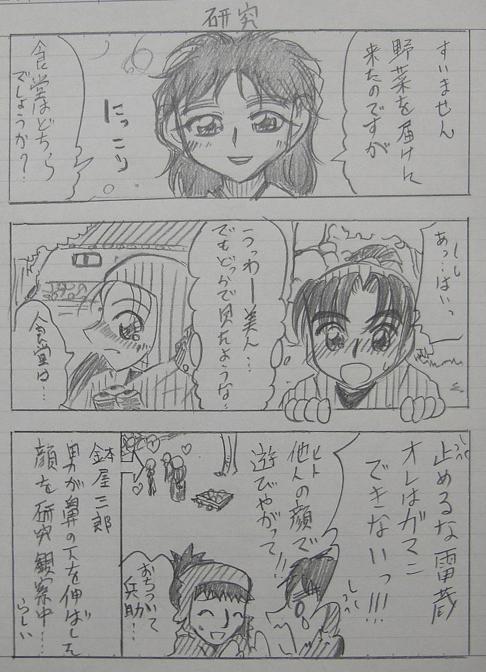 研究
すいません
野菜を届けに
来たのですが
にっこり
食堂はどちら
でしょうか?
あっ…はいっ
うっわー美人…
でもどっかで見たような…
食堂は…
止めるな雷蔵
オレはガマン
できないっ!!!
他人の顔で
ヒト
遊びやがって!!
おちついて
兵助…
鉢屋三郎
男が鼻の下を伸ばした
顔を研究観察中…
らしい